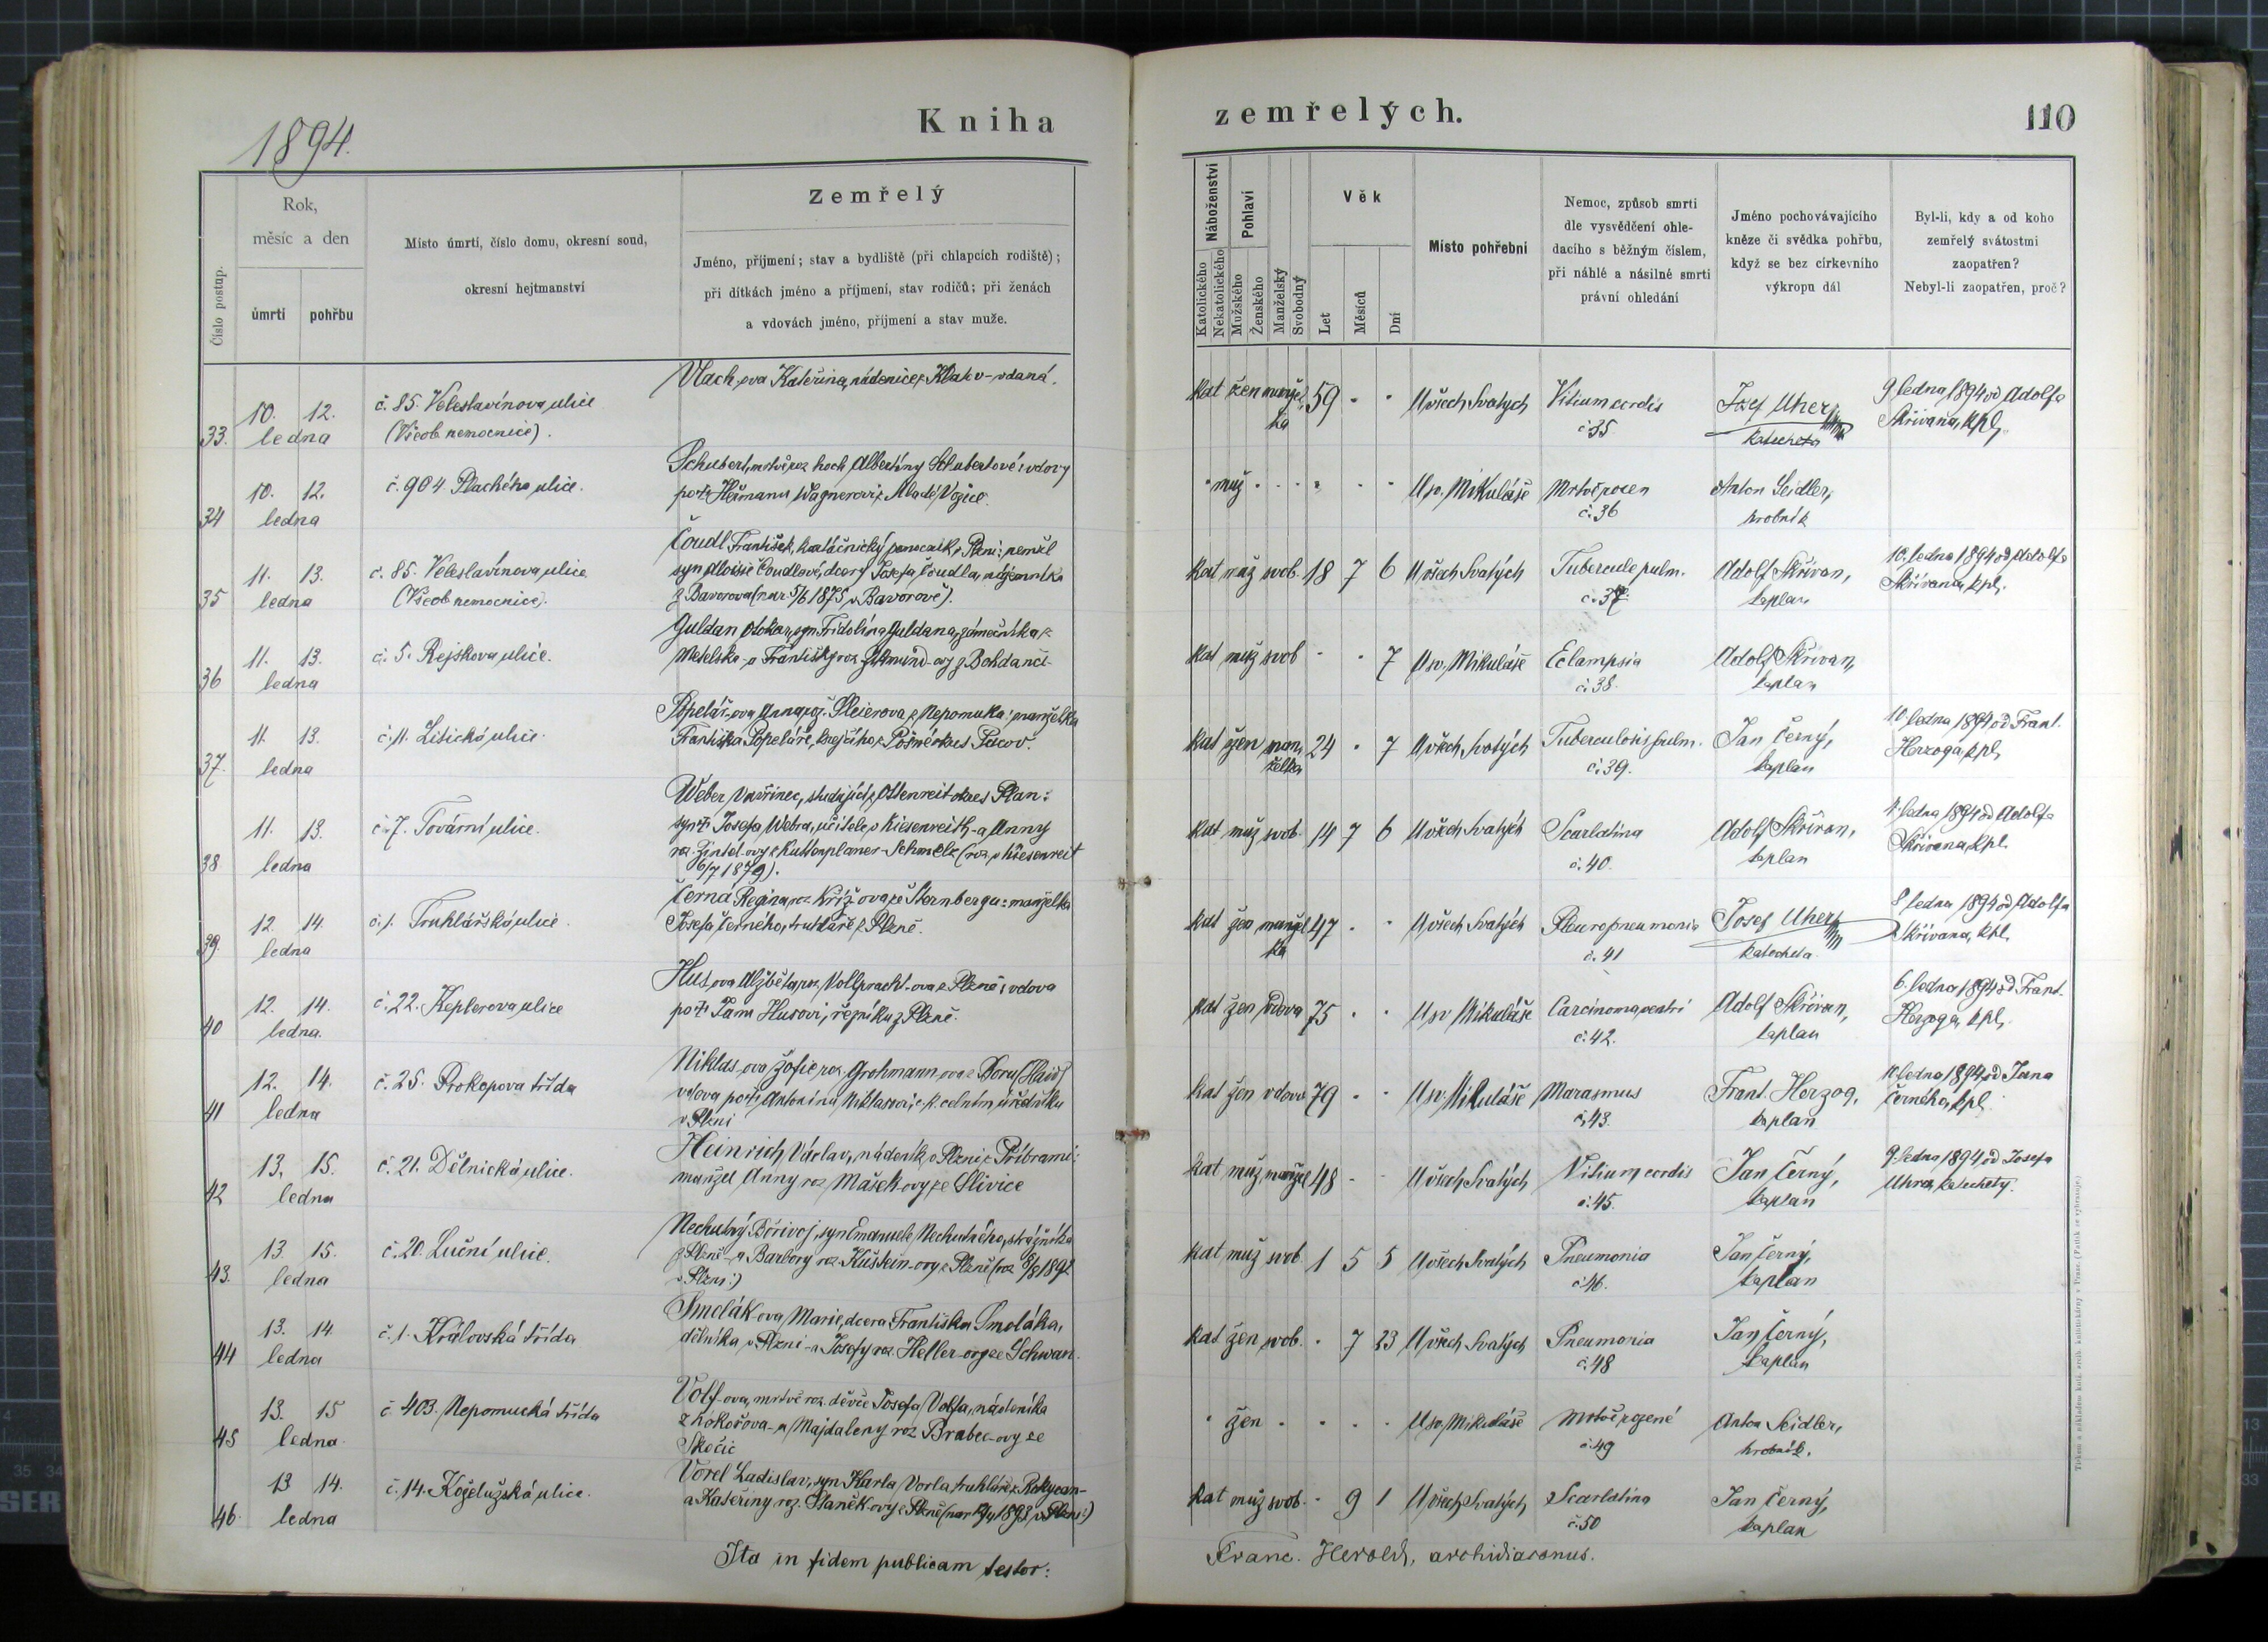 1894.
Kniha
zemřelých.
110
Číslo postup.
Rok,
měsíc a den
úmrtí
pohřbu
Místo úmrtí, číslo domu, okresní soud,
okresní hejtmanství
Zemřelý
Jméno, příjmení; stav a bydliště (při chlapcích rodiště);
při dítkách jméno a příjmení, stav rodičů; při ženách
a vdovách jméno, příjmení a stav muže.
Náboženství
Katolického
Nekatolického
Pohlaví
Mužského
Ženského
Manželský
Svobodný
Věk
Let
Měsíců
Dní
Místo pohřební
Nemoc, způsob smrti
dle vysvědčení ohle-
dacího s běžným číslem,
při náhlé a násilné smrti
právní ohledání
Jméno pochovávajícího
kněze či svědka pohřbu,
když se bez církevního
výkropu dál
Byl-li, kdy a od koho
zemřelý svátostmi
zaopatřen?
Nebyl-li zaopatřen, proč?
33. 10. 12. ledna
č. 85. Veleslavínova ulice
(Všeob. nemocnice).
Vlach-ova Kateřina, nádenice z Klatov - vdaná.
kat žen manžel-
ka 59 · · U všech Svatých
Vitium cordis
č. 35
Josef Uher,
katecheta
9 ledna 1894 od Adolfa
Skřivana, kpl.
34 10. 12. ledna
č. 904. Plachého ulice.
Schubert, mrtvě roz. hoch Albertiny Schubertové: vdovy
po † Heřmanu Wagnerovi z Mladé Vožice.
· muž · · · · · U sv. Mikuláše
Mrtvě rozen
č. 36
Anton Seidler,
hrobník
35 11. 13. ledna
č. 85. Veleslavínova ulice
(Všeob. nemocnice).
Čoudl František, kartáčnický pomocník v Plzni: nemžl.
syn Aloisie Čoudlové, dcery Josefa Čoudla, nájemníka
z Bavorova (nar 5/6 1875 v Bavorově).
kat muž svob. 18 7 6 U všech Svatých
Tubercule pulm.
č. 37
Adolf Skřivan,
kaplan
10. ledna 1894 od Adolfa
Skřivana, kpl.
36 11. 13. ledna
č. 5. Rejskova ulice.
Guldan Otokar, syn Fridolína Guldana, zámečníka z
Metelska - a Františky roz. -ovy z Bohdanči-
kat muž svob · · 7 U sv. Mikuláše
Eclampsia
č. 38.
Adolf Skřivan,
kaplan
37. 11. 13. ledna
č. 11. Litická ulice.
Popelář-ova Anna roz. Sleierova z Nepomuka: manželka
Františka Popeláře, krejčího z okres Pacov.
kat žen man-
želka 24 · 7 U všech Svatých
Tuberculosis pulm.
č. 39.
Jan Černý,
kaplan
10. ledna 1894 od Frant.
Herzoga, kpl.
38 11. 13. ledna
č. 7. Tovární ulice.
Weber Vavřinec, studující z Ottenreit okres Plan:
syn † Josefa Webra, učitele v Kiesenreith - a Anny
roz. Zintel-ovy z Kuttenplaner-Schmelz (roz. v Kiesenreit
6/7 1879).
kat muž svob. 14 7 6 U všech Svatých
Scarlatina
č. 40.
Adolf Skřivan,
kaplan
ledna 1894 od Adolfa
Skřivana, kpl.
39. 12. 14. ledna
č. 1. Truhlářská ulice.
Černá Regina, roz. Křížova ze Šternbergu: manželka
Josefa Černého, truhláře z Plzně.
kat žen manžel
ka 47 · · U všech Svatých
Pleuropneumonia
č. 41
Josef Uher,
katecheta.
8 ledna 1894 od Adolfa
Skřivana, kpl.
40 12. 14. ledna.
č. 22. Keplerova ulice
Hus-ova Alžběta, roz. Vollpracht-ova z Plzně: vdova
po † Janu Husovi, řezníku z Plzně.
kat žen vdova 75 · · U sv Mikuláše
Carcinoma ventri
č. 42.
Adolf Skřivan,
kaplan
6. ledna 1894 od Frant.
Herzoga, kpl.
41 12. 14. ledna
č. 25. Prokopova třída
Niklas-ova Žofie, roz. Grohmann-ova z Boru (Haid)
vdova po † Antonínu Niklasovi, c. k. celním úředníku
v Plzni
kat žen vdova 79 · · U sv. Mikuláše
Marasmus
č. 43.
Frant. Herzog,
kaplan
ledna 1894 od Jana
Černého, kpl.
42 13. 15. ledna
č. 21. Dělnická ulice.
Heinrich Václav, nádeník v Plzni z Příbrami:
manžel Anny roz. Mašek-ovy ze Slivice
kat muž manžel 48 · · U všech Svatých
Vitium cordis
č. 45.
Jan Černý,
kaplan
9. ledna 1894 od Josefa
Uhra, katechety.
43. 13. 15. ledna
č. 20. Luční ulice.
Nechutný Bořivoj, syn Emanuele Nechutného, strážníka
z Plzně - a Barbory roz. -ovy z Plzně (roz 8/8 1892
v Plzni:)
kat muž svob. 1 5 5 U všech Svatých
Pneumonia
č. 46.
Jan Černý,
kaplan
44 13. 14. ledna
č. 1. Královská třída
Smolák-ova Marie, dcera Františka Smoláka,
dělníka v Plzni - a Josefy roz. Heller-ovy ze Schwan.
kat žen svob. · 7 23 U všech Svatých
Pneumonia
č. 48
Jan Černý,
kaplan
45 13. 15 ledna.
č. 403. Nepomucká třída
Volf-ova, mrtvě roz. děvče Josefa Volfa, nádeníka
z Kokořova - a Majdaleny roz Brabec-ovy ze
Skočic
· žen · · · · U sv. Mikuláše
Mrtvě rozené
č. 49
Anton Seidler,
hrobník.
46. 13 14. ledna
č. 14. Koželužská ulice.
Vorel Ladislav, syn Karla Vorla truhláře z Rokycan-
a Kateřiny roz. Haněk-ovy z Plzně (nar 1893 v Plzni:)
kat muž svob. · 9 1 U všech Svatých
Scarlatina
č. 50
Jan Černý,
kaplan
Ita in fidem publicam testor:
Franc. Herold, archidiaconus.